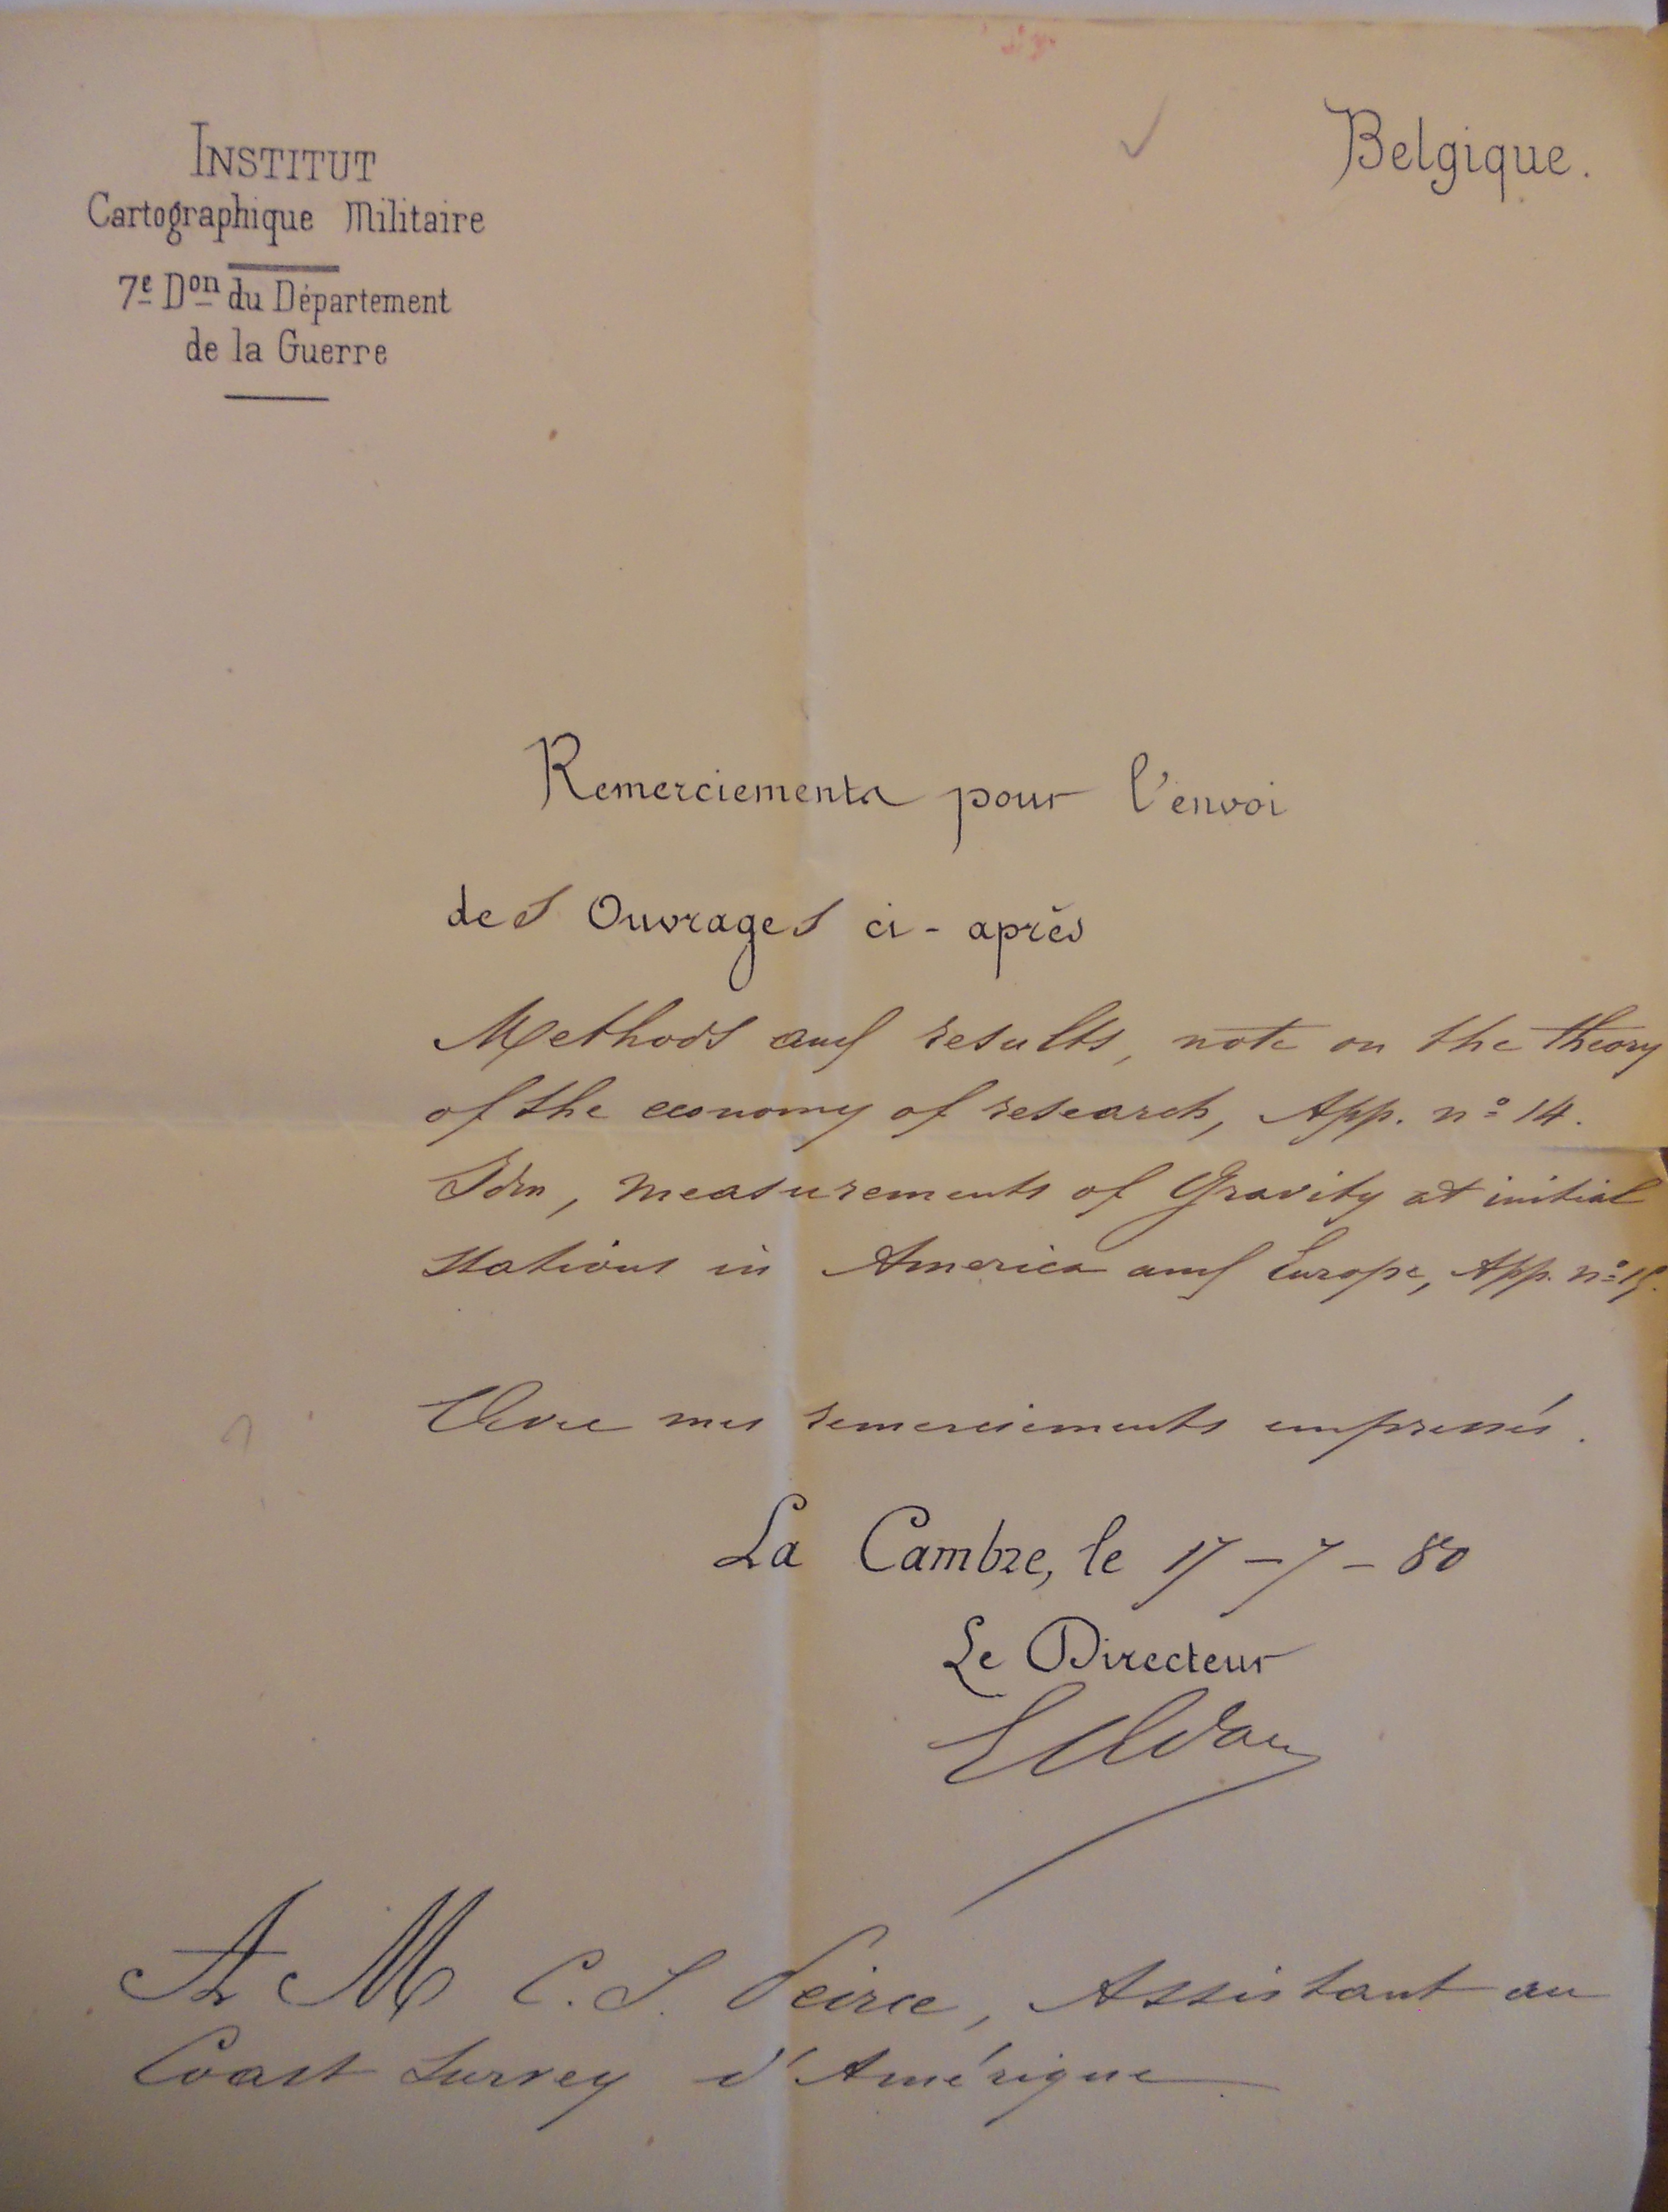 INSTITUT
Cartographique Militaire
7e Don du Département
de la Guerre
Belgique.
Remerciements pour l'envoi
des Ouvrages ci-après
Methods and results, note on the theory
of the economy of research, App. nº 14.
Idm, measurements of Gravity at initial
stations in America and Europe, App. nº 15.
Avec mes remerciements empressés.
La Cambre, le 17-7-80
Le Directeur
A M C. S. Peirce, Assistant au
Coast Survey d'Amérique